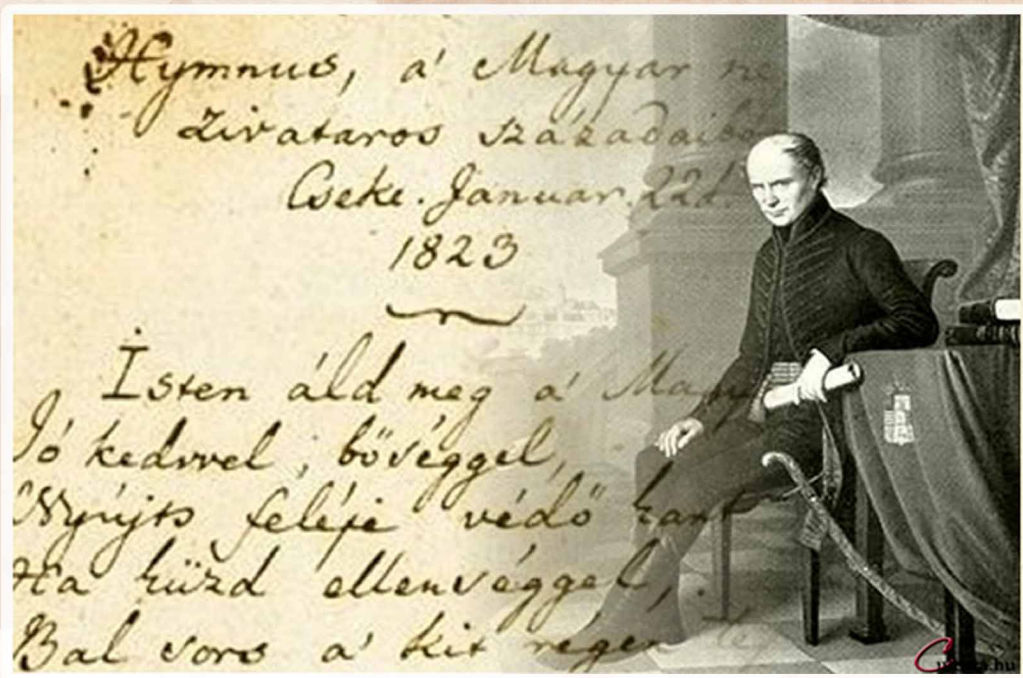 Hymnus, a' Magyar
zivataros századaibó
Cseke. Január 22d.
1823
Isten áld meg a' Magy
Jó kedvvel, bőséggel,
Nyújts feléje védő kart
Ha küzd ellenséggel,
Bal sors a' kit régen